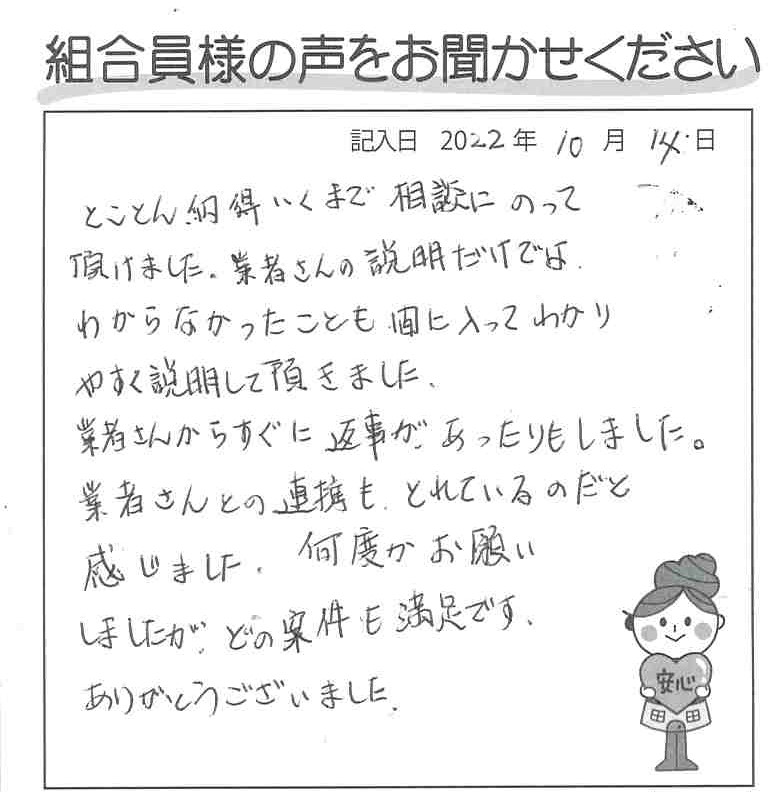 組合員様の声をお聞かせください
記入日 2022年 10月 14日
とことん納得いくまで 相談に のって
頂けました。業者さんの説明だけでは、
わからなかったことも 間に入って わかり
やすく説明して頂きました、
業者さんからすぐに返事が、あったりもしました。
業者さんとの連携も、とれているのだと
感じました、何度か お願い
しましたが、どの案件も満足です、
ありがとうございました、
安心